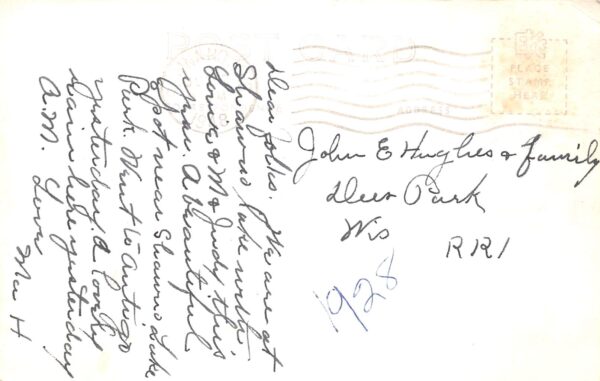 POST CARD
ADDRESS
EKC
PLACE
STAMP
HERE
Dear Folks. We are at
Shawano Lake with
& M & Judy this
year. A beautiful
spot near Shawno Lake
Park. Went to Antigo
yesterday. A lovely
rain here yesterday
A.M. Love
Ma H
John E Hughes & Family
Deer Park
Wis
RR1
1928